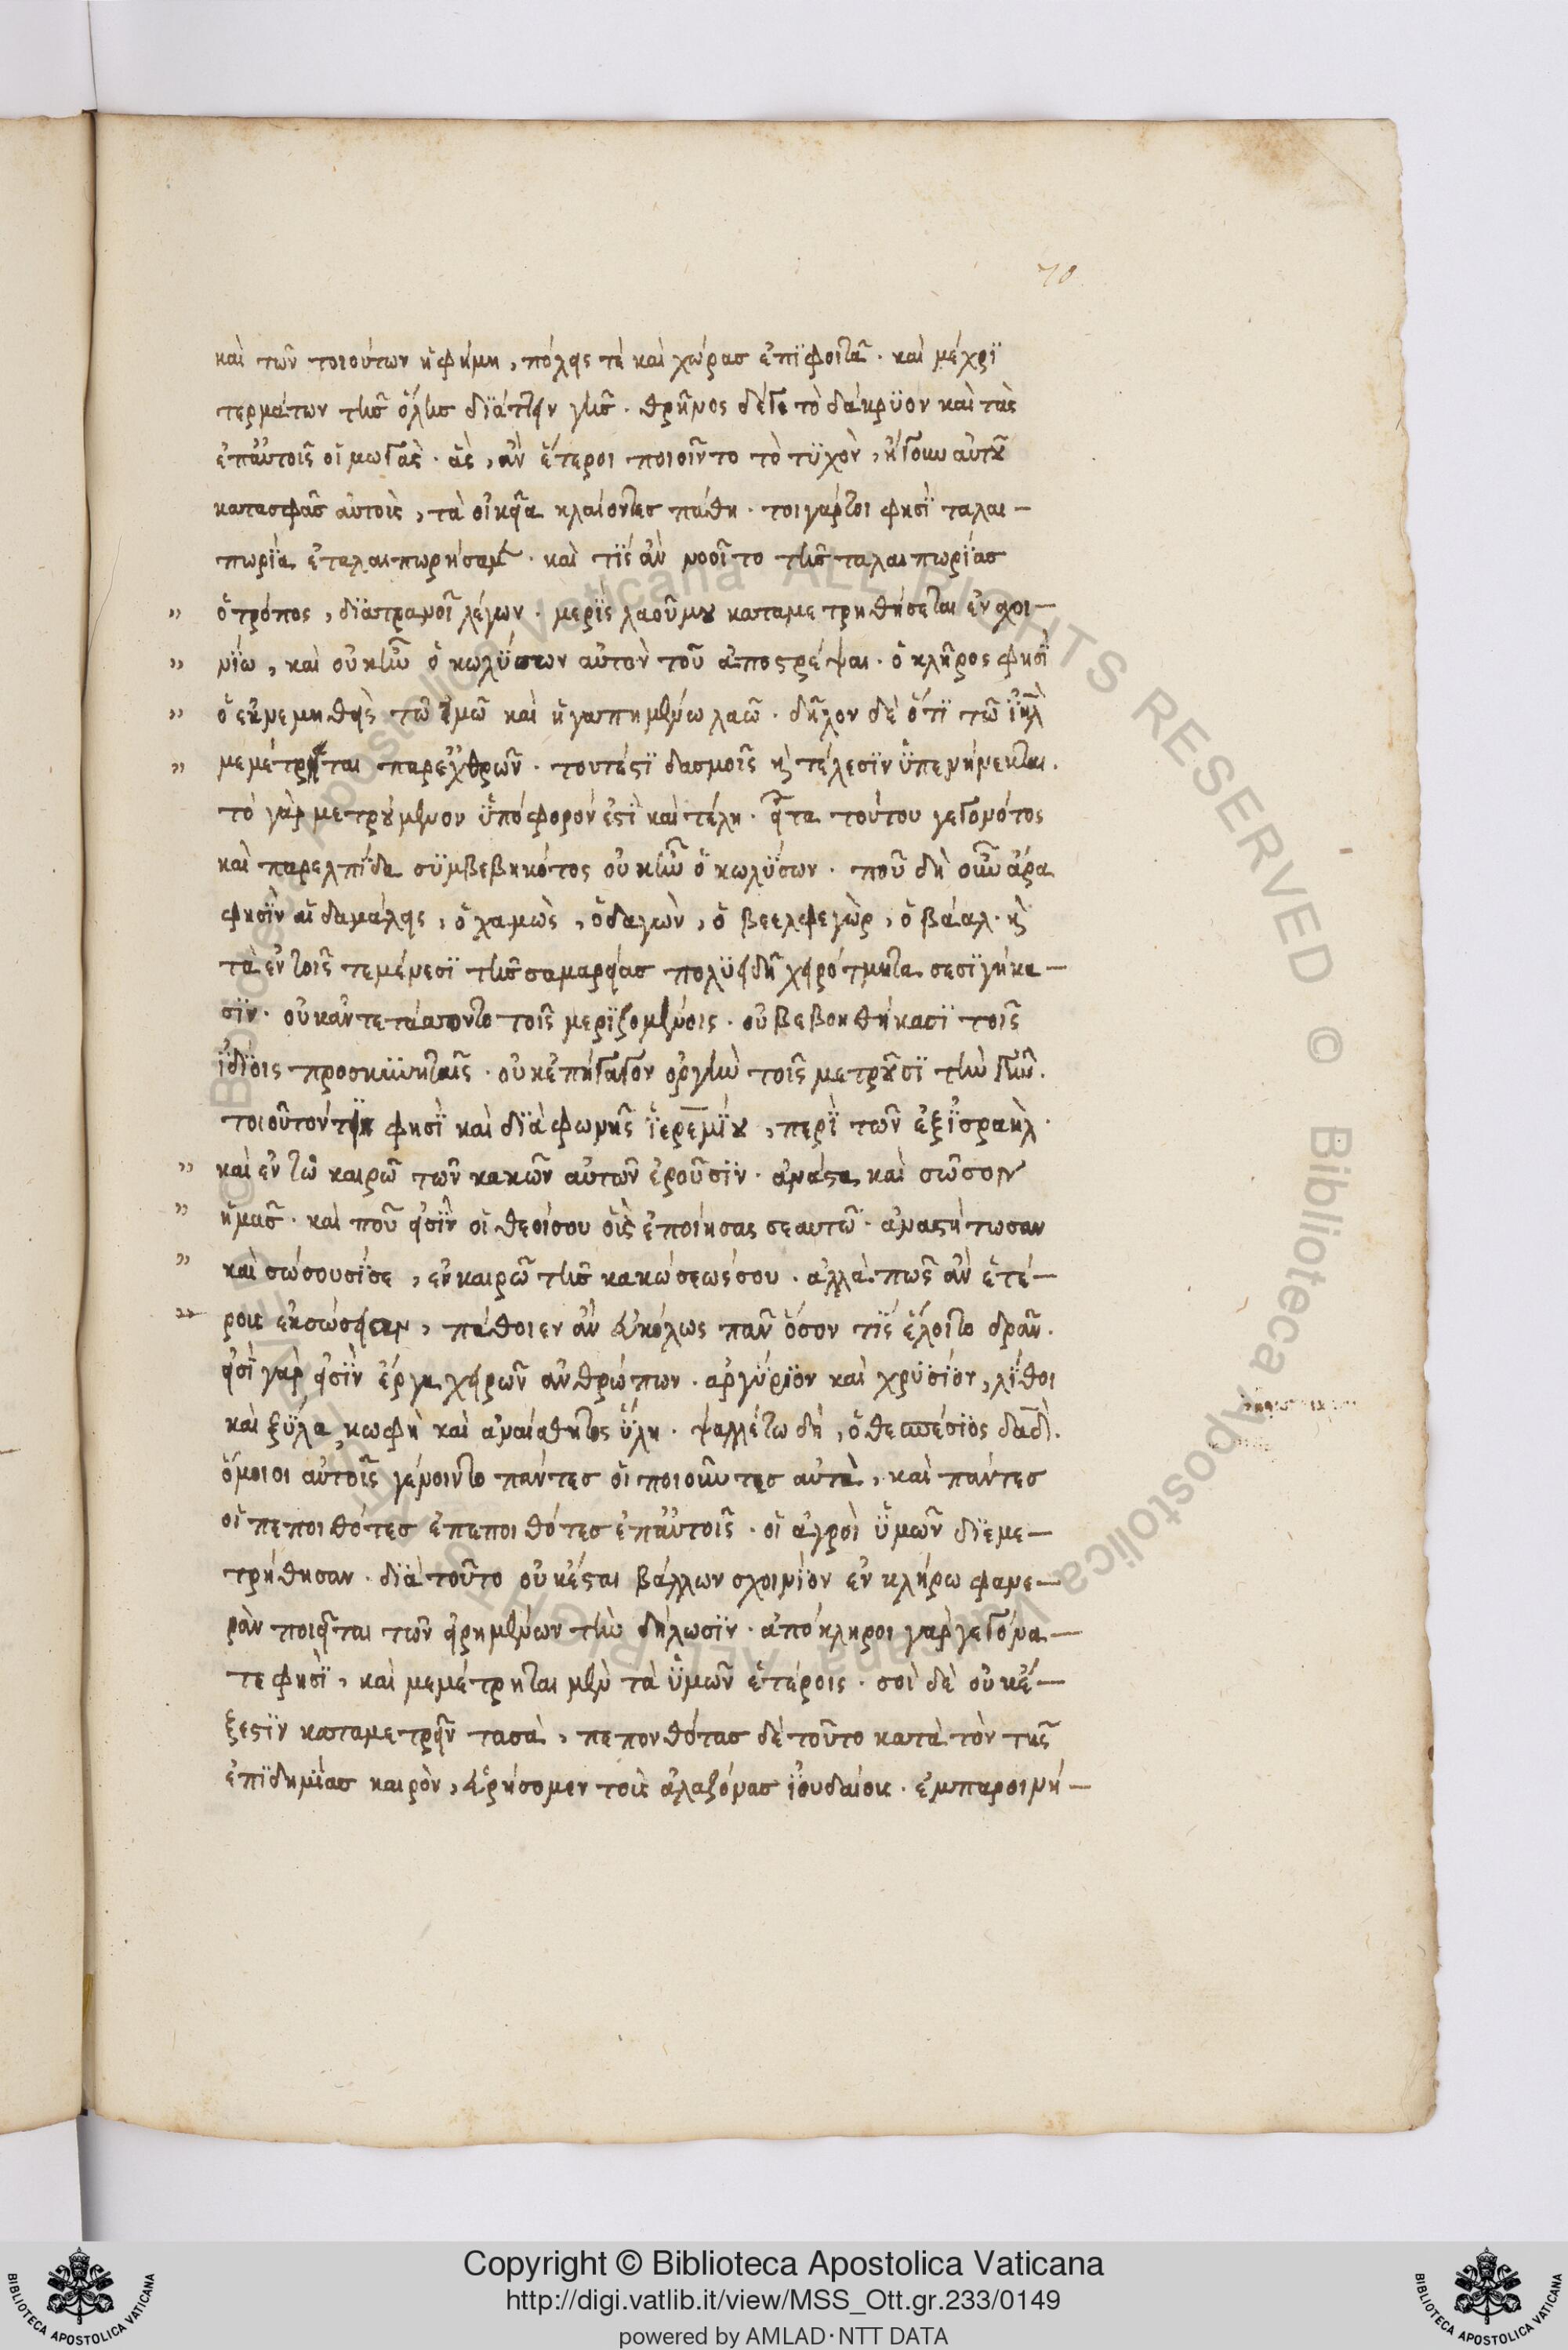 70
καὶ τῶν τοιούτων ἡ φήμη, πόλεις τὲ καὶ χώρας ἐπϊφοιτᾶ. καὶ μέχρϊ
τερμάτων τῆς ὅλης διάττειν γῆς. θρῆνος δέ γε τὸ δάκρϋον καὶ τὰς
ἐπ' αὐτοῖς οἰμωγάς. ἃς, ἂν ἕτεροι ποιοῖντο τὸ τϋχὸν, ἤγουν αὐτοῦ
κατασφᾶς αὐτοὺς, τὰ οἰκεῖα κλαίοντες πάθη. τοιγάρτοι φησὶ ταλαι-
πωρία ἐταλαιπωρήσαμεν. καὶ τίς ἂν νοοῖτο τῆς ταλαιπωρίας
" ὁ τρόπος, διατρανοῖ λέγων. μερὶς λαοῦ μου καταμετρηθήσεται ἐν σχοι-
" νίω, καὶ οὐκ ἦν ὁ κωλύσων αὐτὸν τοῦ ἀποστρέψαι. ὁ κλῆρος φησὶ
" ὁ ἐκνεμηθεὶς τῶ ἐμῶ καὶ ἠγαπημένω λαῶ. δῆλον δὲ ὅτι τῶ ἰηλ
" μεμέτρηται παρ' ἐχθρῶν. τουτέστι δασμοῖς κ τέλεσιν ὑπενήνεκται.
τὸ γὰρ μετρούμενον ὑπόφορόν ἐστι καὶ τέλη. εἶτα τούτου γεγονότος
καὶ παρελπίδα συμβεβηκότος οὐκ ἦν ὁ κωλύσων. ποῦ δὴ οὖν ἄρα
φησὶν αἱ δαμάλεις, ὁ χαμὼς, ὁ δαγὼν, ὁ βεελφεγὼρ, ὁ βάαλ. κ
τὰ ἐν τοῖς τεμένεσι τῆς σαμαρείας πολυειδῆ χειρότμητα σεσιγήκα-
σιν. οὐκ ἀντετάττοντο τοῖς μεριζομένοις. οὐ βεβοηθήκασι τοῖς
ἰδίοις προσκυνηταῖς. οὐκ ἐπήγαγον ὀργὴν τοῖς μετροῦσι τὴν γῆν.
τοιοῦτόν τι φησὶ καὶ διὰ φωνῆς ἱερεμίου, περὶ τῶν ἐξ ἰσραήλ.
" καὶ ἐν τῶ καιρῶ τῶν κακῶν αὐτῶν ἐροῦσιν. ἀνάστα καὶ σῶσον
" ἡμᾶς. καὶ ποῦ εἰσὶν οἱ θεοί σου οὓς ἐποίησας σεαυτῶ. ἀναστήτωσαν
" καὶ σώσουσί σε, ἐν καιρῶ τῆς κακώσεώς σου. ἀλλὰ πῶς ἂν ἑτέ-
" ροις ἐκσώσειαν, πάθοιεν ἂν εὐκόλως πᾶν ὅσον τὶς ἕλοιτο δρᾶν.
εἰσὶ γὰρ εἰσὶν ἔργα χειρῶν ἀνθρώπων. ἀργύριον καὶ χρυσίον, λίθοι
καὶ ξύλα κωφὴ καὶ ἀναίσθητος ὕλη. ψαλλέτω δὴ, ὁ θεσπέσιος δαδ.
ὅμοιοι αὐτοῖς γένοιντο πάντες οἱ ποιοῦντες αὐτὰ, καὶ πάντες
οἱ πεποιθότες ἐπεποιθότες ἐπ' αὐτοῖς. οἱ ἀγροὶ ὑμῶν διεμε-
τρήθησαν. διὰ τοῦτο οὐκ ἔσται βάλλων σχοινίον ἐν κλήρω φανε-
ρὰν ποιεῖται τῶν εἰρημένων τὴν δήλωσιν. ἀπόκληροι γὰρ γεγόνα-
τε φησὶ, καὶ μεμέτρηται μὲν τὰ ὑμῶν ἑτέροις. σοὶ δὲ οὐκ ἔ-
ξεστιν καταμετρεῖν τασὰ, πεπονθότας δὲ τοῦτο κατὰ τὸν τῆς
ἐπιδημίας καιρὸν, εὑρήσομεν τοὺς ἀλαζόνας ἰουδαίους. ἐμπαροινή-
Copyright © Biblioteca Apostolica Vaticana
http://digi.vatlib.it/view/MSS_Ott.gr.233/0149
powered by AMLAD·NTT DATA